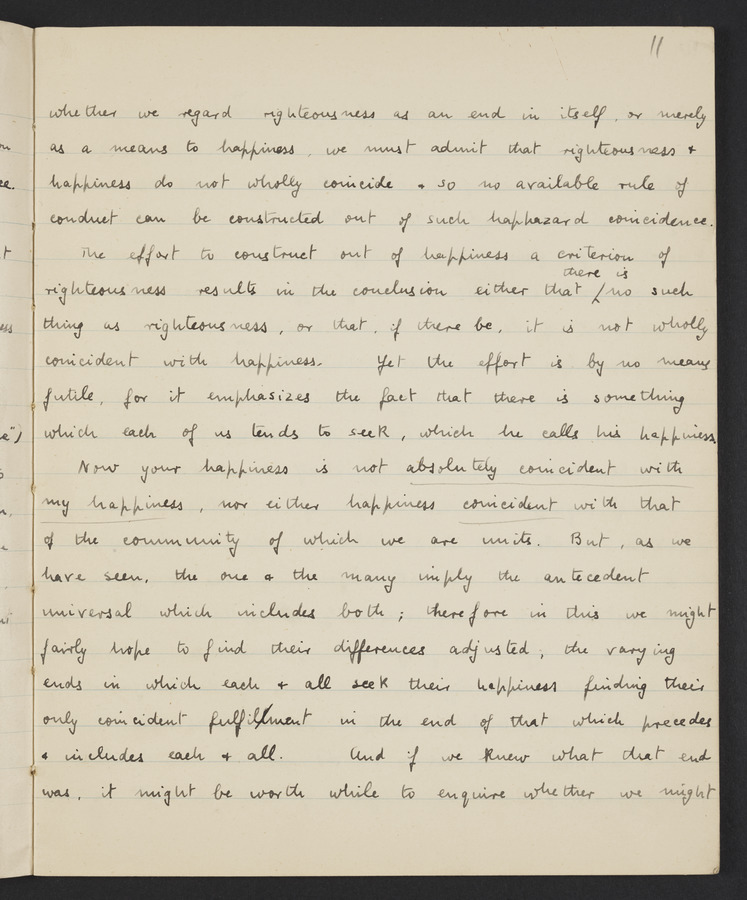 11
whether we regard righteousness as an end in itself, or merely
as a means to happiness, we must admit that righteousness &
happiness do not wholly coincide & so no available rule of
conduct can be constructed out of such haphazard coincidence.
The effort to construct out of happiness a criterion of
there is
righteousness results in the conclusion either that / no such
thing as righteousness, or that, if there be, it is not wholly
coincident with happiness. Yet the effort is by no means
futile, for it emphasizes the fact that there is something
which each of us tends to seek, which he calls his happiness.
Now your happiness is not absolutely coincident with
my happiness, nor either happiness coincident with that
of the community of which we are units. But, as we
have seen, the one & the many imply the antecedent
universal which includes both; therefore in this we might
fairly hope to find their differences adjusted; the varying
ends in which each & all seek their happiness finding their
only coincident fulfillment in the end of that which precedes
& includes each & all. And if we knew what that end
was, it might be worth while to enquire whether we might